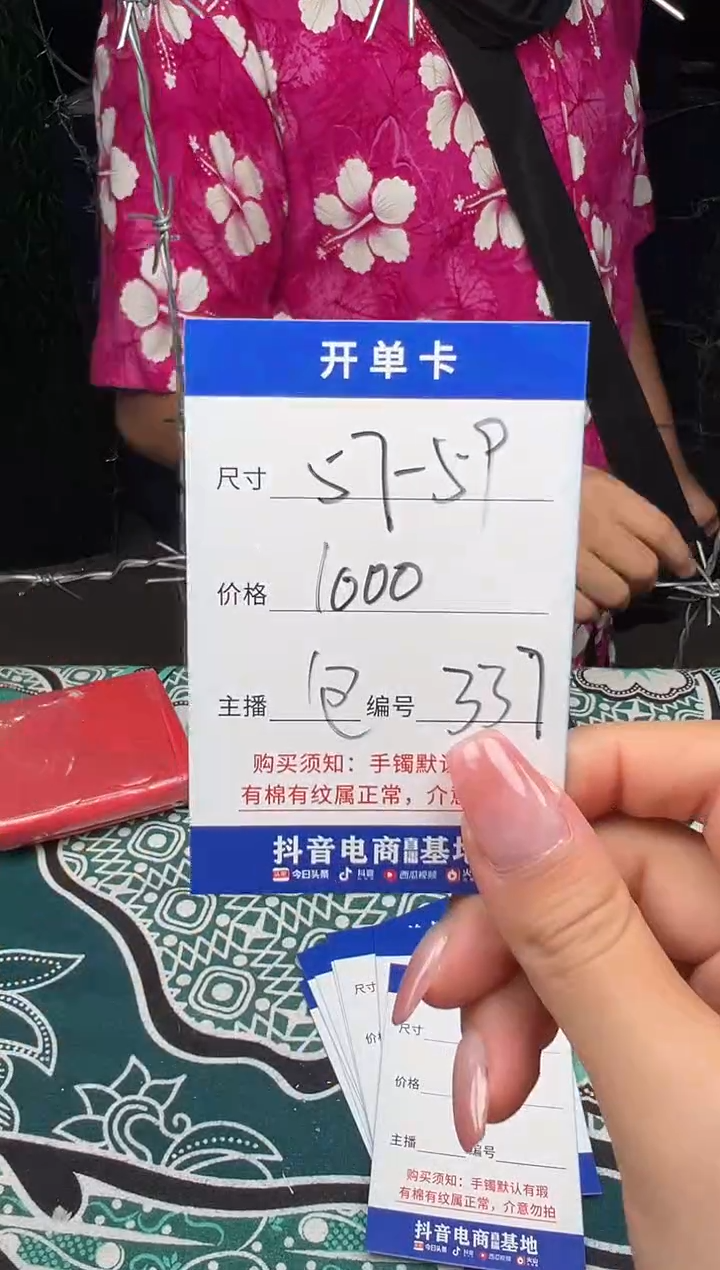 开单卡
尺寸 57-59
价格 1000
主播 包 编号 337
购买须知：手镯默认
有棉有纹属正常，介意
抖音电商直播基地
今日头条 抖音 西瓜视频
尺寸
价
尺寸
价格
主播 编号
购买须知：手镯默认有瑕
有棉有纹属正常，介意勿拍
抖音电商直播基地
今日头条 抖音 西瓜视频